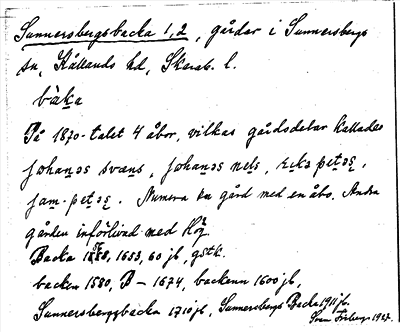 Sunnersbergsbacka 1,2, gårdar i Sunnersbergs
sn, Kållands hd, Skarab. l.
båka
På 1870-talet 4 åbor, vilkas gårdsdelar kallades
johanəs svæns, johanəs nels,
jam-petəs. Numera en gård med en åbo. Andra
gården införlivad med Hög.
Backa 1653, 60 jb,
backen 1580, B— 1674, backenn 1600 jb,
Sunnersbergzbacka 1710 jb, Sunnersbergs Backa 1911 jb.
Sven 1927.